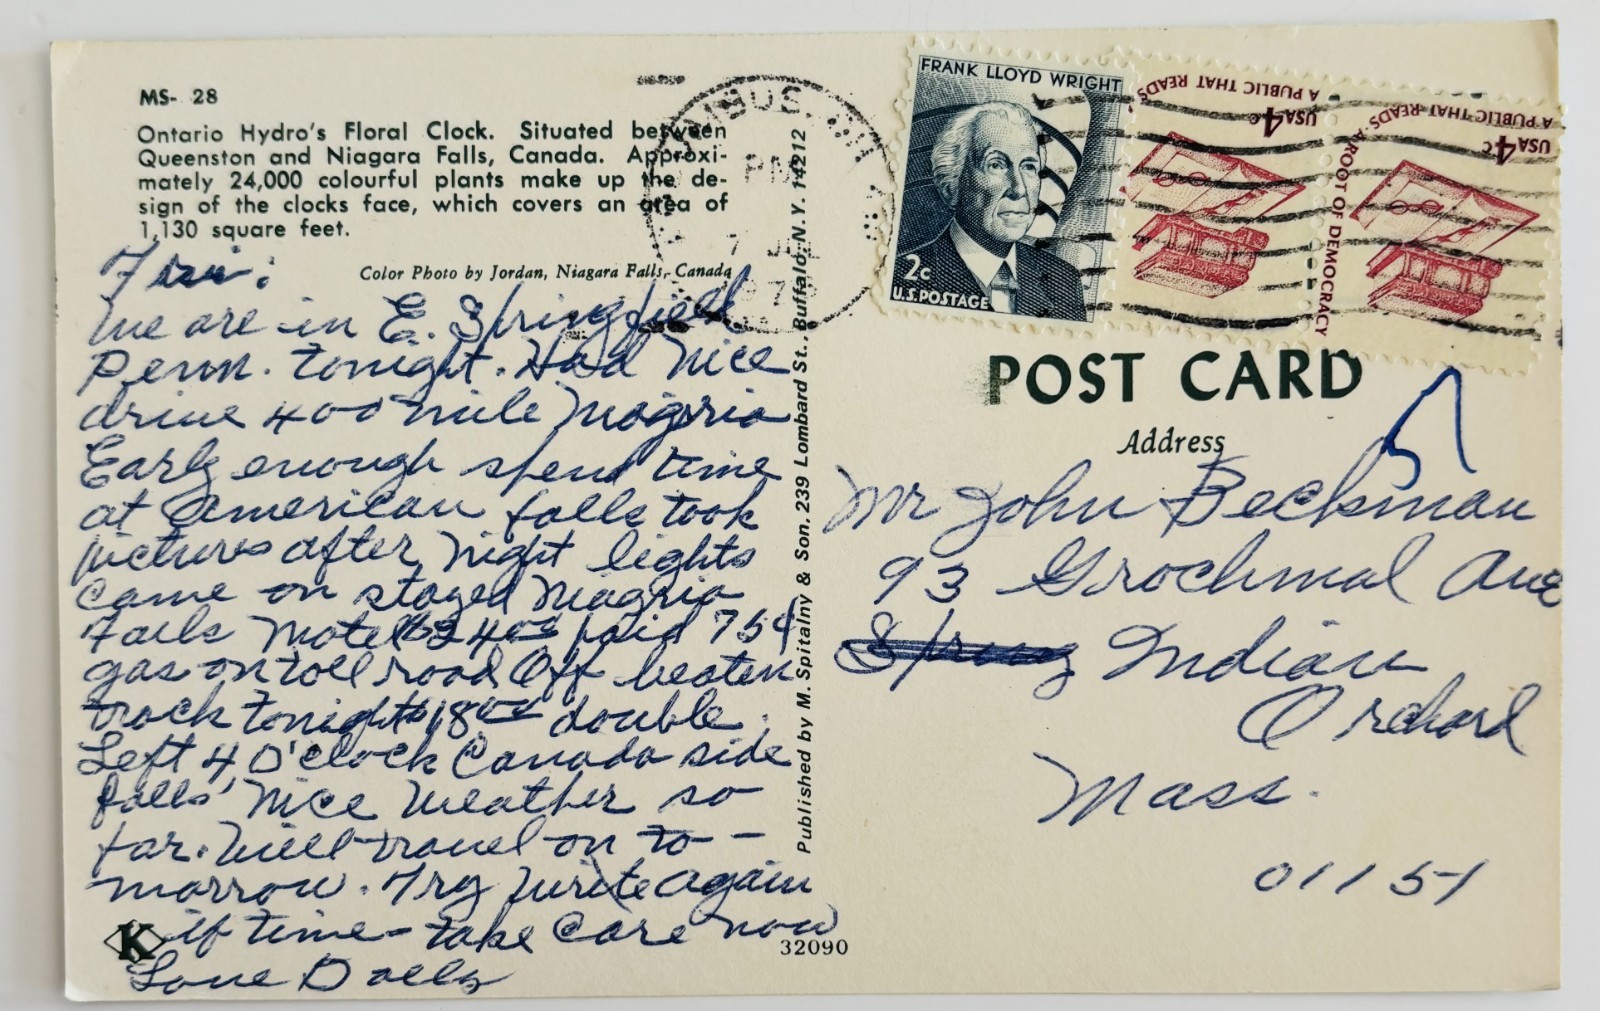 MS- 28
Ontario Hydro's Floral Clock. Situated between
Queenston and Niagara Falls, Canada. Approxi-
mately 24,000 colourful plants make up the de-
sign of the clocks face, which covers an area of
1,130 square feet.
Color Photo by Jordan, Niagara Falls, Canada
Fri:
We are in E. Springfield
Penn. tonight. Had nice
drive 400 mile Niagria
Early enough spend time
at American falls took
pictures after night lights
came on stayed Niagria
Falls Motel $24.00 paid 75¢
gas on toll road Off beaten
track tonight $18.00 double.
Left 4 O'Clock Canada side
falls' Nice Weather so
far. Will travel on to-
morrow. Try write again
if time - take care now
Love Dolly
K
32090
Published by M. Spitalny & Son. 239 Lombard St., Buffalo, N. Y. 14212
PM
FRANK LLOYD WRIGHT
2c
U.S. POSTAGE
A PUBLIC THAT READS
USA 4c
A PUBLIC THAT READS A ROOT OF DEMOCRACY
USA 4c
POST CARD
Address
Mr John Beckman
93 Grochmal Ave
Indian
Orchard
Mass.
01151